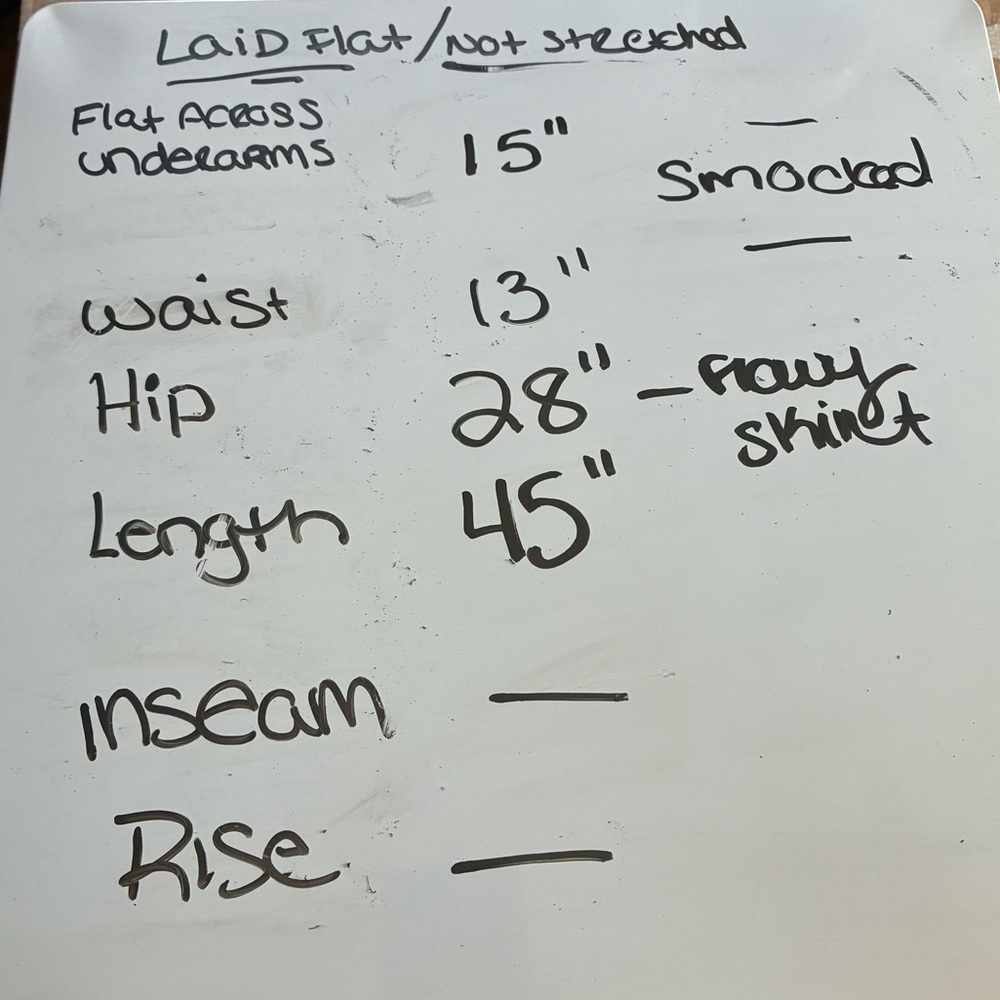 Laid Flat/Not stretched
Flat Across
underarms 15" — Smocked —
waist 13"
Hip 28" - flowy
skirt
Length 45"
inseam —
Rise —